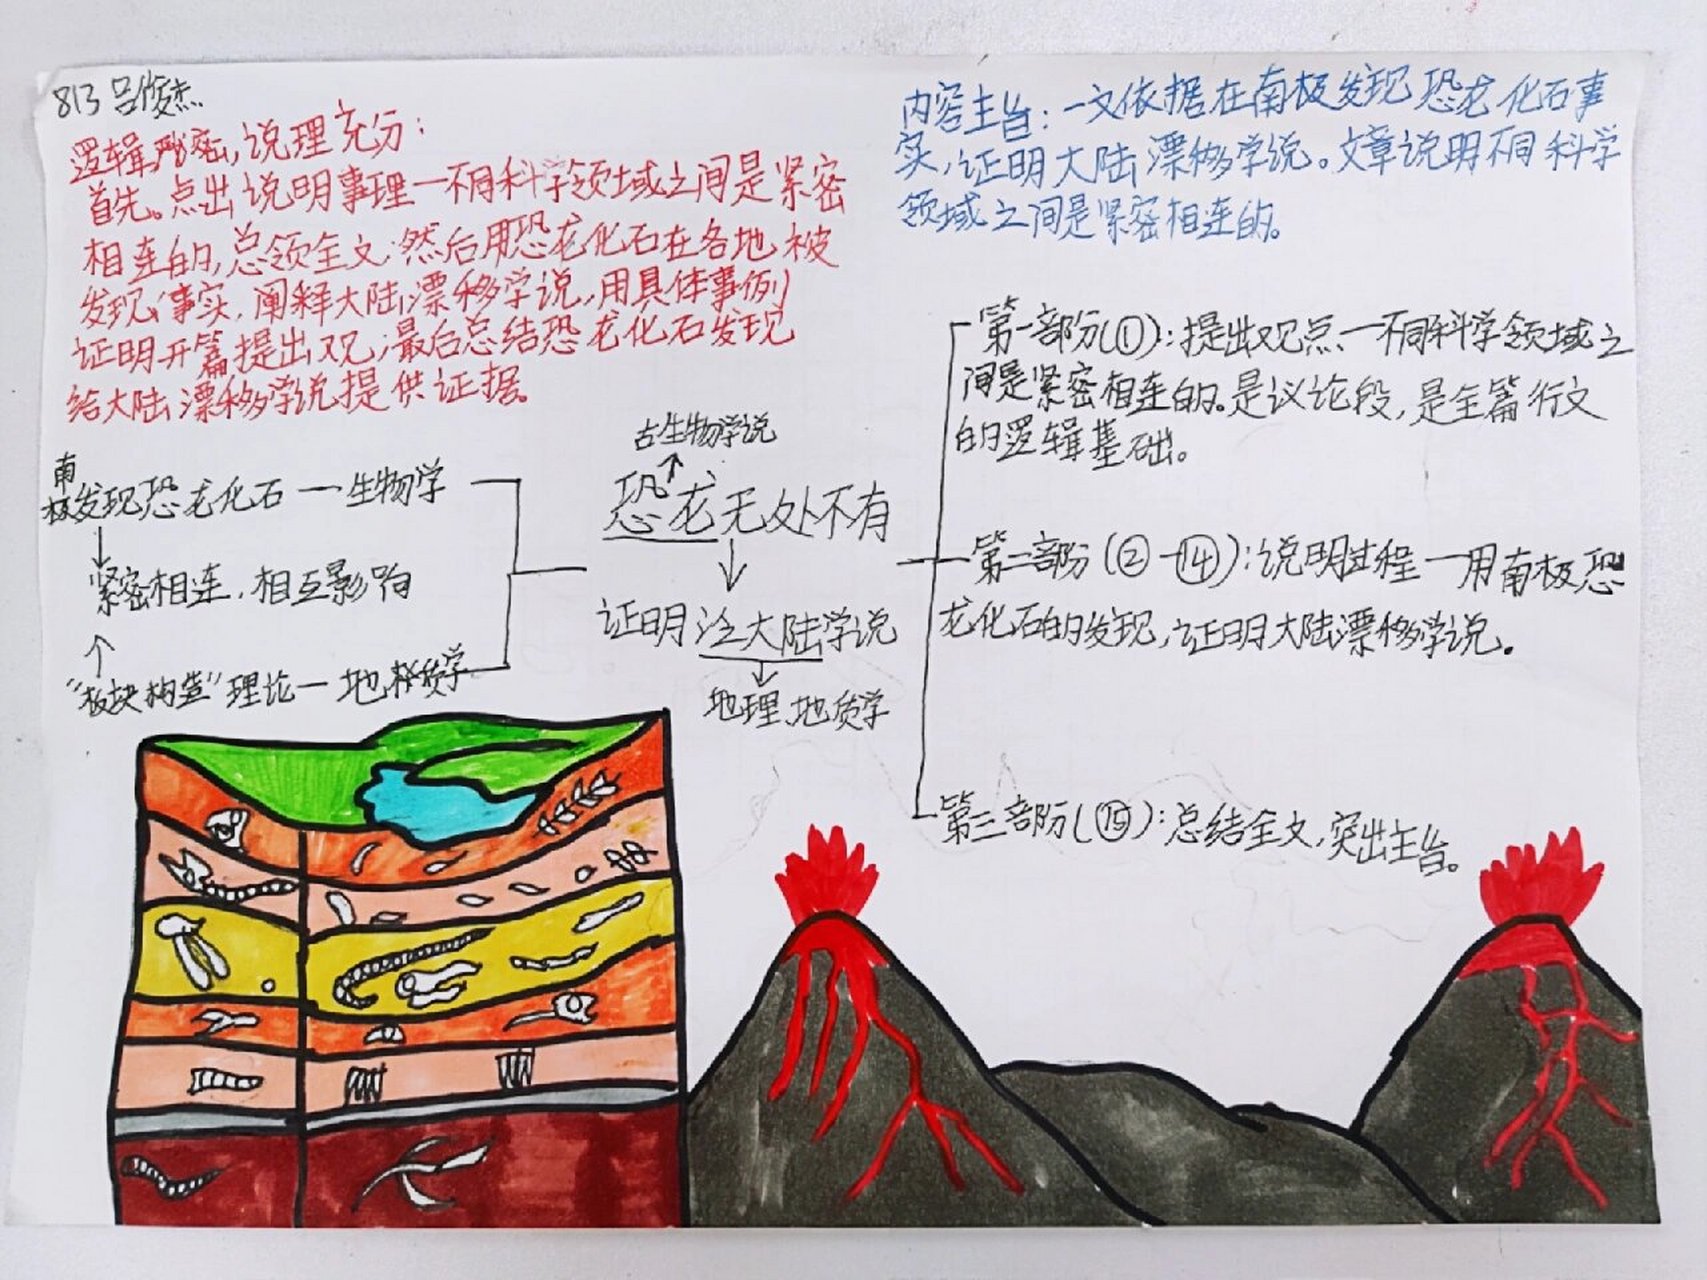 813 吕俊杰
逻辑严密,说理充分:
首先。点出说明事理一不同科学领域之间是紧密
相连的,总领全文;然后用恐龙化石在各地被
发现事实,阐释大陆漂移学说,用具体事例
证明开篇提出观;最后总结恐龙化石发现
给大陆漂移学说提供证据。
内容主旨:一文依据在南极发现恐龙化石事
实,证明大陆漂移学说。文章说明不同科学
领域之间是紧密相连的。
南
极发现恐龙化石一生物学
紧密相连,相互影响
“板块构造”理论一地质学
古生物学说
恐龙无处不有
证明大陆学说
地理、地质学
第一部份(①):提出观点、一不同科学领域之
间是紧密相连的。是议论段,是全篇行文
的逻辑基础。
第二部份(②一⑭):说明过程一用南极恐
龙化石的发现,证明大陆漂移学说。
第三部份(⑮):总结全文,突出主旨。